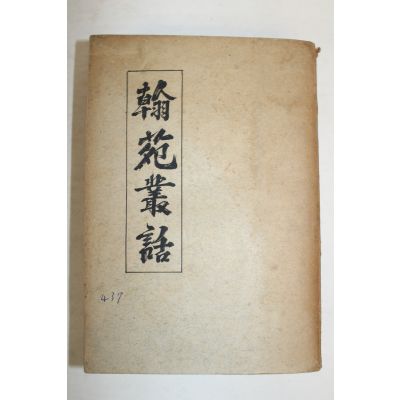 翰苑叢話
437